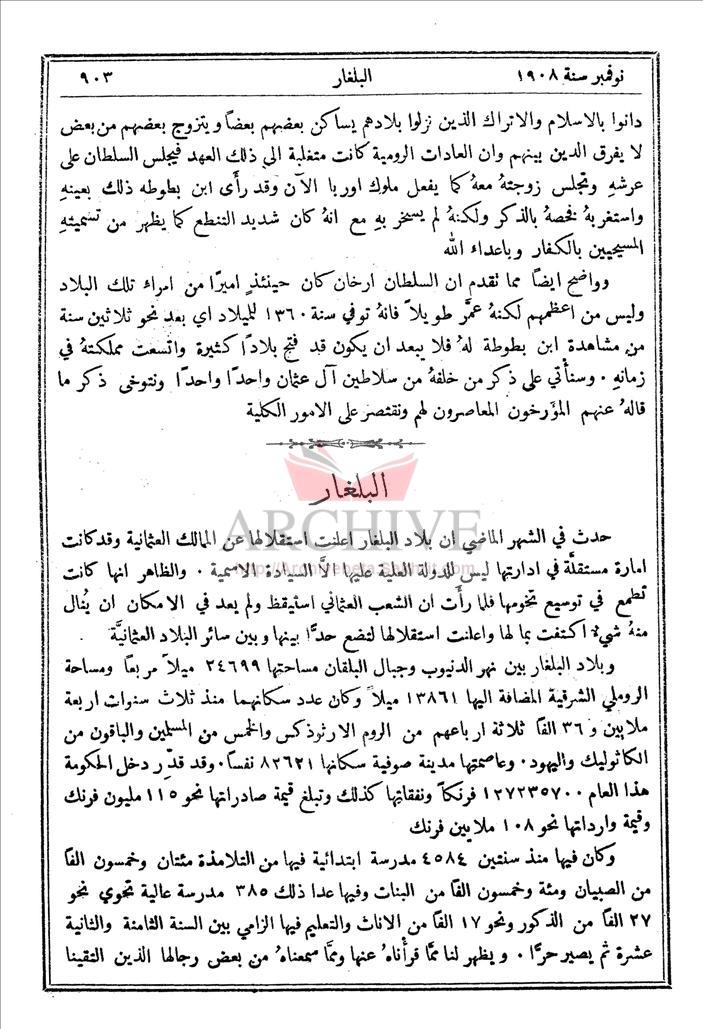 نوفمبر سنة ١٩٠٨ البلغار ٩٠٣
دانوا بالاسلام والاتراك الذين نزلوا بلادهم يساكن بعضهم بعضاً ويتزوج بعضهم من بعض
لا يفرق الدين بينهم وان العادات الرومية كانت متغلبة الى ذلك العهد فيجلس السلطان على
عرشهِ وتجلس زوجتهُ معهُ كما يفعل ملوك اوربا الآن وقد رأى ابن بطوطه ذلك بعينهِ
واستغربهُ فخصهُ بالذكر ولكنهُ لم يسخر بهِ مع انهُ كان شديد التنطع كما يظهر من تسميتهِ
المسيحيين بالكفار وباعداء الله
وواضح ايضاً مما تقدم ان السلطان ارخان كان حينئذٍ اميرًا من امراء تلك البلاد
وليس من اعظمهم لكنهُ عمَّر طويلاً فانهُ توفي سنة ١٣٦٠ للميلاد اي بعد نحو ثلاثين سنة
من مشاهدة ابن بطوطة لهُ فلا يبعد ان يكون قد فتح بلادًا كثيرة واتسعت مملكتهُ في
زمانهِ ٠ وسنأتي على ذكر من خلفهُ من سلاطين آل عثمان واحدًا واحدًا ونتوخى ذكر ما
قالهُ عنهم المؤرخون المعاصرون لهم ونقتصر على الامور الكلية
البلغار
ARCHIVE
حدث في الشهر الماضي ان بلاد البلغار اعلنت استقلالها عن الممالك العثمانية وقد كانت
امارة مستقلَّة في ادارتها ليس للدولة العلية عليها الاَّ السيادة الاسمية ٠ والظاهر انها كانت
تطمع في توسيع تخومها فلما رأت ان الشعب العثماني استيقظ ولم يعد في الامكان ان يُنال
منهُ شيءٌ اكتفت بما لها واعلنت استقلالها لتضع حدًّا بينها وبين سائر البلاد العثمانيَّة ٠
وبلاد البلغار بين نهر الدنيوب وجبال البلقان مساحتها ٢٤٦٩٩ ميلاً مربعاً ومساحة
الروملي الشرقية المضافة اليها ١٣٨٦١ ميلاً وكان عدد سكانهما منذ ثلاث سنوات اربعة
ملايين و ٣٦ الفاً ثلاثة ارباعهم من الروم الارثوذكس والخمس من المسلمين والباقون من
الكاثوليك واليهود ٠ وعاصمتها مدينة صوفية سكانها ٨٢٦٢١ نفساً ٠ وقد قدِّر دخل الحكومة
هذا العام ١٢٧٢٣٥٧٠٠ فرنكاً ونفقاتها كذلك وتبلغ قيمة صادراتها نحو ١١٥ مليون فرنك
وقيمة وارداتها نحو ١٠٨ ملايين فرنك
وكان فيها منذ سنتين ٤٥٨٤ مدرسة ابتدائية فيها من التلامذة مئتان وخمسون الفاً
من الصبيان ومئة وخمسون الفاً من البنات وفيها عدا ذلك ٣٨٥ مدرسة عالية تحوي نحو
٢٧ الفاً من الذكور ونحو ١٧ الفاً من الاناث والتعليم فيها الزامي بين السنة الثامنة والثانية
عشرة ثم يصير حرًّا ٠ ويظهر لنا ممَّا قرأناهُ عنها وممَّا سمعناهُ من بعض رجالها الذين التقينا